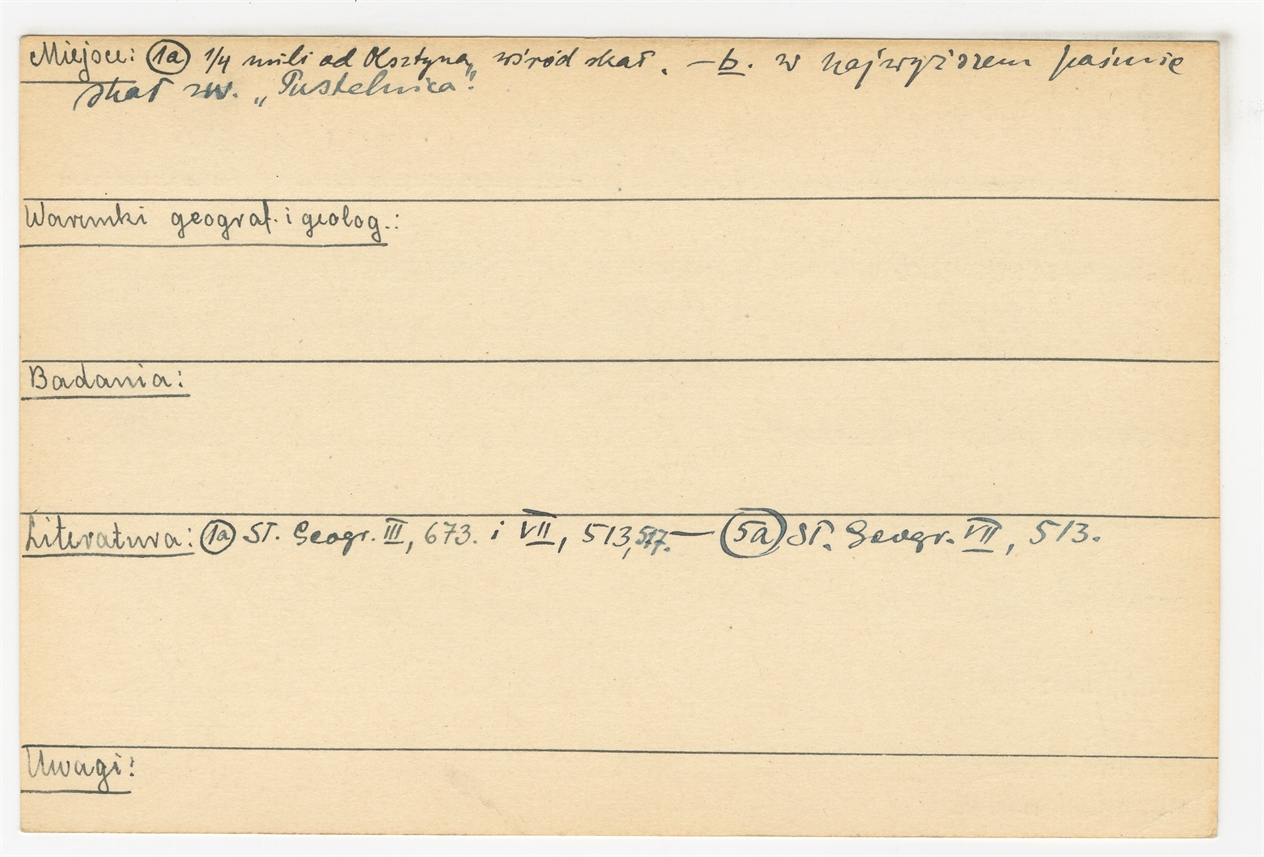 Miejsce: 1a 1/4 mili od Olsztyna, wśród skał. — b. w najwyższem paśmie
skał zw. „Pustelnica".
Warunki geograf. i geolog.:
Badania:
Literatura: 1a Sł. Geogr. III, 673. i VII, 513, 517. — 5a Sł. Geogr. VII, 513.
Uwagi: